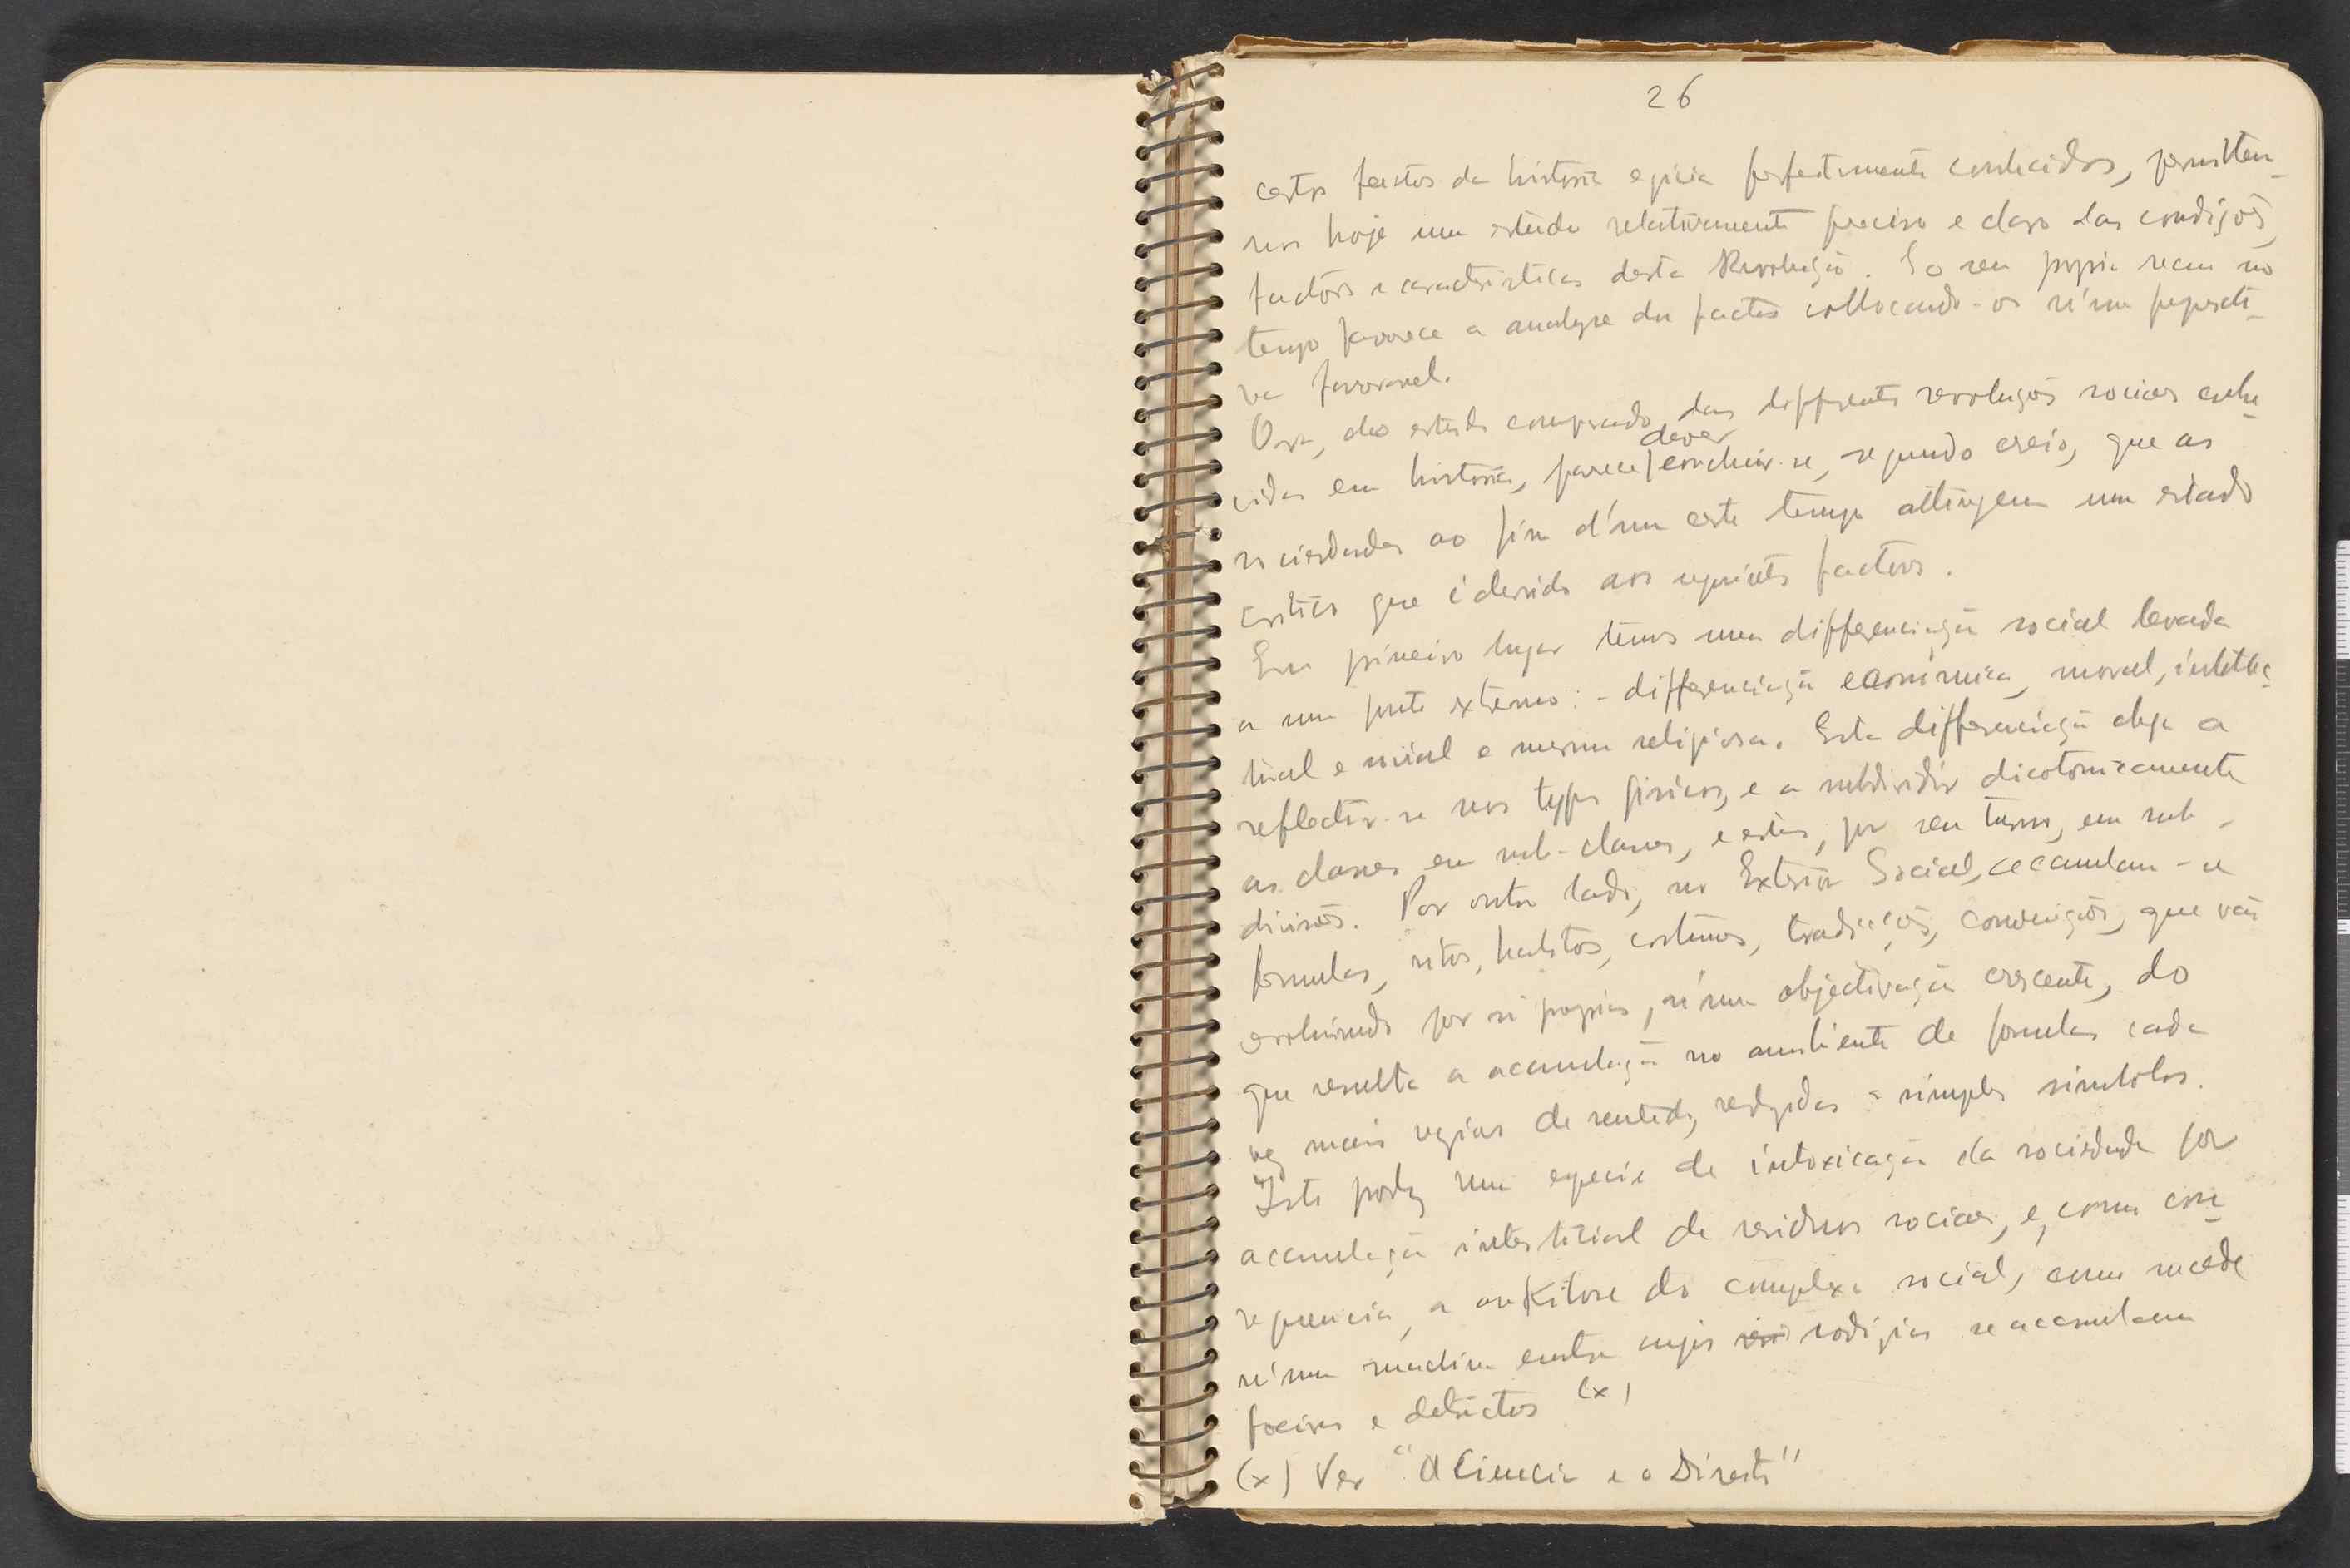 26
certos factos da historia egipcia perfeitamente conhecidos, permittem-
nos hoje um estudo relativamente preciso e claro das condições,
factores e caracteristicas desta Revolução. E o seu proprio recuo no
tempo favorece a analyse dos factos collocando-os n'uma perspecti-
va favoravel.
Ora, do estudo comparado das differentes revoluções sociaes conhe-
dever
cidas em historia, parece concluir-se, segundo creio, que as
sociedades ao fim d'um certo tempo attingem um estado
critico que é devido aos seguintes factores.
Em primeiro lugar temos uma differenciação social levada
a um ponto extremo: - differenciação económica, moral, intellec-
tual e social e mesmo religiosa. Esta differenciação chega a
reflectir-se nos typos fisicos, e a subdividir dicotomicamente
as classes em sub-classes, e estas, por seu turno, em sub-
divisões. Por outro lado, no Exterior Social, accumulam-se
formulas, ritos, habitos, costumes, tradicções, convenções, que vão
evoluindo por si proprios, n'uma objectivação crescente, do
que resulta a acumulação no ambiente de formulas cada
vez mais vazias de sentido, reduzidas a simples simbolos.
Isto produz uma especie de intoxicação da sociedade por
acumulação intersticial de residuos sociaes, e, como con-
sequencia, a ankilose do complexo social, como succede
n'uma machina entre cujas rodizias se acumulam
poeiras e detrictos (x)
(x) Ver "A Ciencia e o Direito"